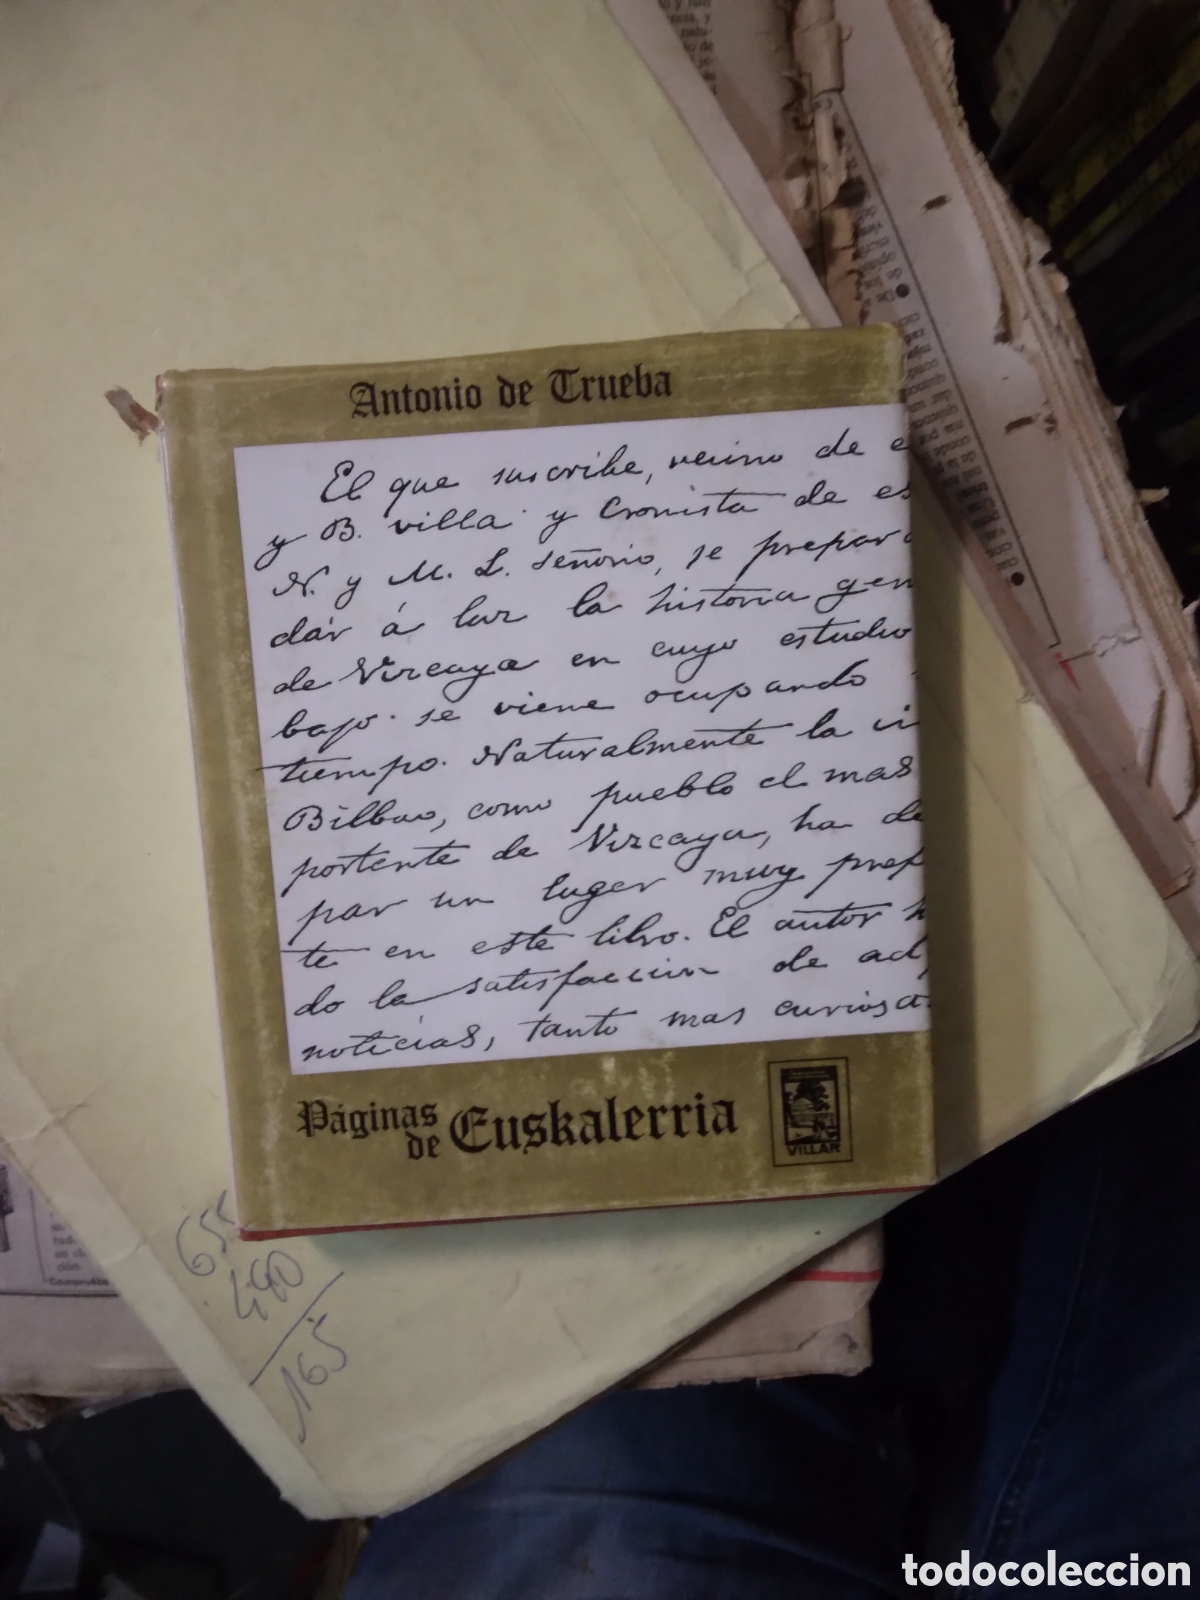 Antonio de Trueba
El que suscribe, vecino de e
y B. villa y Cronista de es
N. y M. L. señorio, se prepara
dár á luz la historia gen
de Vizcaya en cuyo estudio
bajo se viene ocupando
tiempo. Naturalmente la vi
Bilbao, como pueblo el mas
portente de Vizcaya, ha de
par un lugar muy pref
te en este libro. El autor h
do la satisfaccion de ad
noticias, tanto mas curiosa
Páginas de Euskalerria
VILLAR
655
490
165
todocoleccion